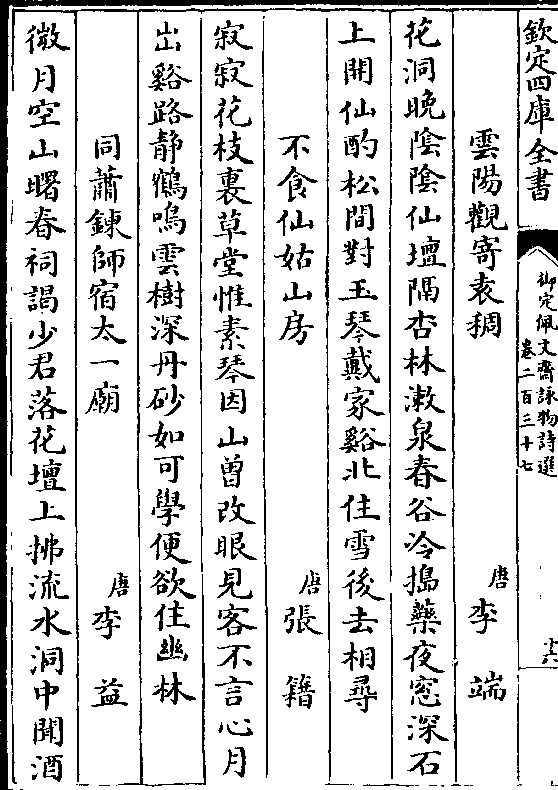 欽定四庫全書
御定佩文齋詠物詩選
卷二百三十七
十六
雲陽觀寄袁稠
唐李端
花洞晚陰陰仙壇隔杏林漱泉春谷冷搗藥夜窓深石
上開仙酌松間對玉琴戴家谿北住雪後去相尋
不食仙姑山房
唐張籍
寂寂花枝裏草堂惟素琴因山曾改眼見客不言心月
出谿路静鶴鳴雲樹深丹砂如可學便欲住幽林
同蕭鍊師宿太一廟
唐李益
微月空山曙春祠謁少君落花壇上拂流水洞中聞酒